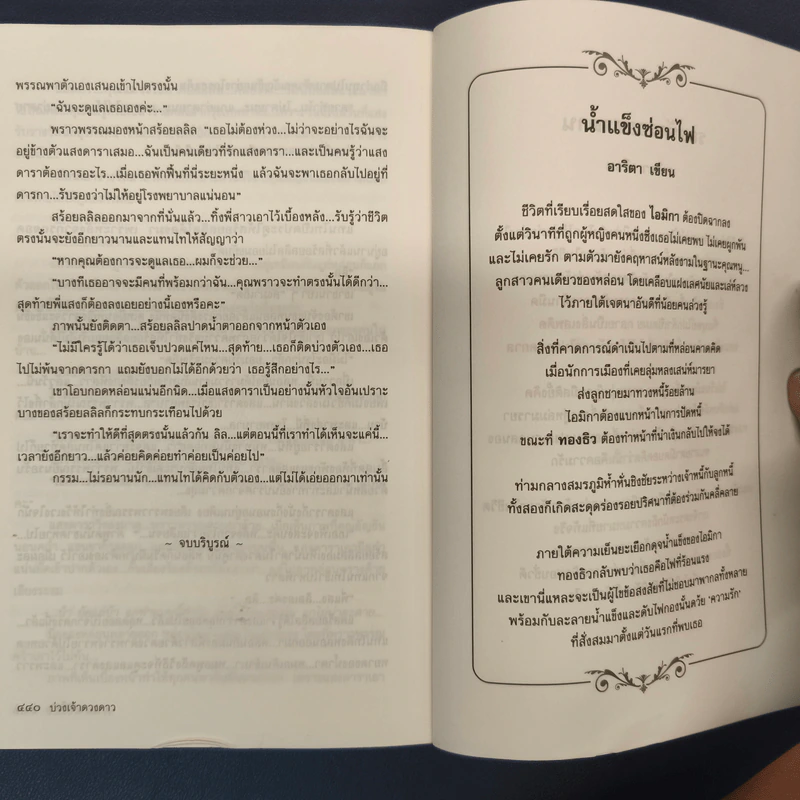 พรรณพาตัวเองเสนอเข้าไปตรงนั้น
“ฉันจะดูแลเธอเองค่ะ...”
พราวพรรณมองหน้าสร้อยลลิล “เธอไม่ต้องห่วง...ไม่ว่าจะอย่างไรฉันจะ
อยู่ข้างตัวแสงดาราเสมอ...ฉันเป็นคนเดียวที่รักแสงดารา...และเป็นคนรู้ว่าแสง
ดาราต้องการอะไร...เมื่อเธอพักฟื้นที่นี่ระยะหนึ่ง แล้วฉันจะพาเธอกลับไปอยู่ที่
ดารกา...รับรองว่าไม่ให้อยู่โรงพยาบาลแน่นอน”
สร้อยลลิลออกมาจากที่นั่นแล้ว...ทิ้งพี่สาวเอาไว้เบื้องหลัง...รับรู้ว่าชีวิต
ตรงนั้นจะยังอีกยาวนานและแทนไทให้สัญญาว่า
“หากคุณต้องการจะดูแลเธอ...ผมก็จะช่วย...”
“บางทีเธออาจจะมีคนที่พร้อมกว่าฉัน...คุณพราวจะทำตรงนั้นได้ดีกว่า...
สุดท้ายพี่แสงก็ต้องลงเอยอย่างนี้เองหรือคะ”
ภาพนั้นยังติดตา...สร้อยลลิลปาดน้ำตาออกจากหน้าตัวเอง
“ไม่มีใครรู้ได้ว่าเธอเจ็บปวดแค่ไหน...สุดท้าย...เธอก็ติดบ่วงตัวเอง...เธอ
ไปไม่พ้นจากดารกา แถมยังบอกไม่ได้อีกด้วยว่า เธอรู้สึกอย่างไร...”
เขาโอบกอดหล่อนแน่นอีกนิด...เมื่อแสงดาราเป็นอย่างนั้นหัวใจอันเปราะ
บางของสร้อยลลิลก็กระทบกระเทือนไปด้วย
“เราจะทำให้ดีที่สุดตรงนั้นแล้วกัน ลิล...แต่ตอนนี้ที่เราทำได้เห็นจะแค่นี้...
เวลายังอีกยาว...แล้วค่อยคิดค่อยทำค่อยเป็นค่อยไป”
กรรม...ไม่รอนานนัก...แทนไทได้คิดกับตัวเอง...แต่ไม่ได้เอ่ยออกมาเท่านั้น
~ จบบริบูรณ์ ~
๔๔๐ บ่วงเจ้าดวงดาว
น้ำแข็งซ่อนไฟ
อาริตา เขียน
ชีวิตที่เรียบเรื่อยสดใสของ ไอมิกา ต้องปิดฉากลง
ตั้งแต่วินาทีที่ถูกผู้หญิงคนหนึ่งซึ่งเธอไม่เคยพบ ไม่เคยผูกพัน
และไม่เคยรัก ตามตัวมายังคฤหาสน์หลังงามในฐานะคุณหนู...
ลูกสาวคนเดียวของหล่อน โดยเคลือบแฝงเลศนัยและเล่ห์ลวง
ไว้ภายใต้เจตนาอันดีที่น้อยคนล่วงรู้
สิ่งที่คาดการณ์ดำเนินไปตามที่หล่อนคาดคิด
เมื่อนักการเมืองที่เคยลุ่มหลงเสน่ห์มารยา
ส่งลูกชายมาทวงหนี้ร้อยล้าน
ไอมิกาต้องแบกหน้าในการปัดหนี้
ขณะที่ ทองธิว ต้องทำหน้าที่นำเงินกลับไปให้จงได้
ท่ามกลางสมรภูมิห้ำหั่นชิงชัยระหว่างเจ้าหนี้กับลูกหนี้
ทั้งสองก็เกิดสะดุดร่องรอยปริศนาที่ต้องร่วมกันคลี่คลาย
ภายใต้ความเย็นยะเยือกดุจน้ำแข็งของไอมิกา
ทองธิวกลับพบว่าเธอคือไฟที่ร้อนแรง
และเขานี่แหละจะเป็นผู้ไขข้อสงสัยที่ไม่ชอบมาพากลทั้งหลาย
พร้อมกับละลายน้ำแข็งและดับไฟกองนั้นด้วย ‘ความรัก’
ที่สั่งสมมาตั้งแต่วันแรกที่พบเธอ